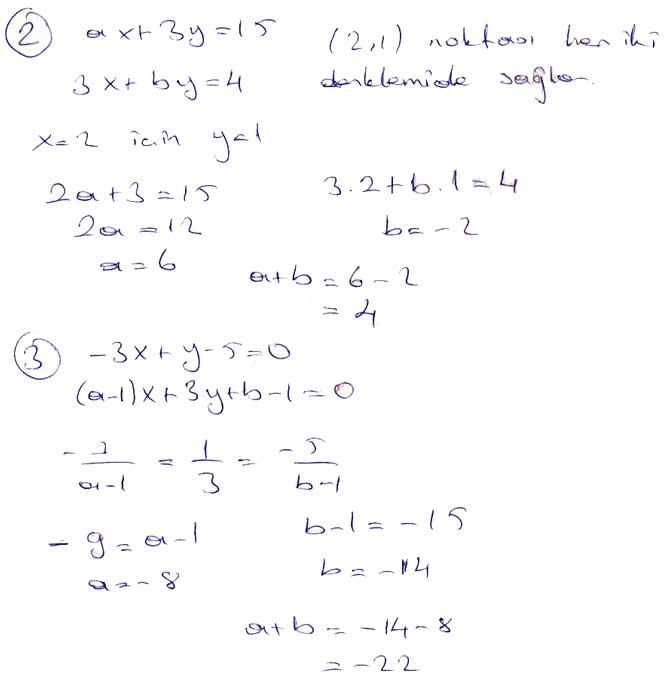 ② ax+3y=15 (2,1) noktası her iki
3x+by=4 denklemide sağlar.
x=2 için y=1
2a+3=15 3.2+b.1=4
2a=12 b=-2
a=6 a+b=6-2
=4
③ -3x+y-5=0
(a-1)x+3y+b-1=0
-3/(a-1) = 1/3 = -5/(b-1)
-9=a-1 b-1=-15
a=-8 b=-14
a+b=-14-8
=-22